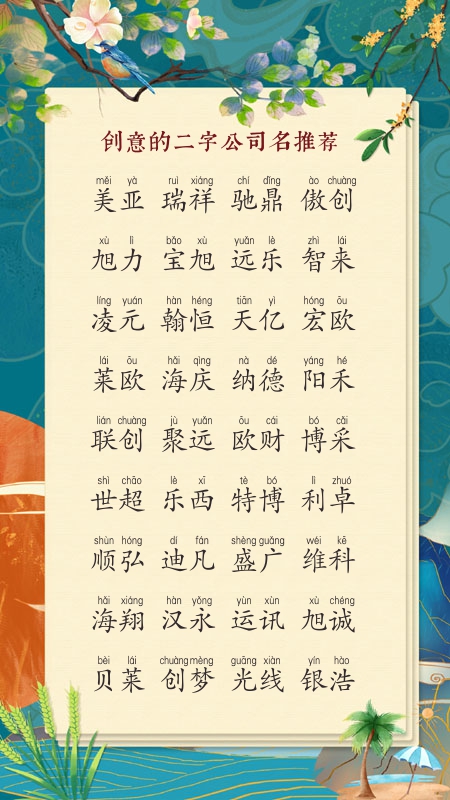 创意的二字公司名推荐
měi yà ruì xiáng chí dǐng ào chuàng
美亚 瑞祥 驰鼎 傲创
xú lì bǎo xù yuǎn lè zhì lái
旭力 宝旭 远乐 智来
líng yuán hàn héng tiān yì hóng ōu
凌元 翰恒 天亿 宏欧
lái ōu hǎi qìng nà dé yáng hé
莱欧 海庆 纳德 阳禾
lián chuàng jù yuǎn ōu cái bó cǎi
联创 聚远 欧财 博采
shì chāo lè xī tè bó lì zhuó
世超 乐西 特博 利卓
shùn hóng dí fán shèng guǎng wéi kē
顺弘 迪凡 盛广 维科
hǎi xiáng hàn yǒng yùn xùn xù chéng
海翔 汉永 运讯 旭诚
bèi lái chuàng mèng guāng xiàn yín hào
贝莱 创梦 光线 银浩